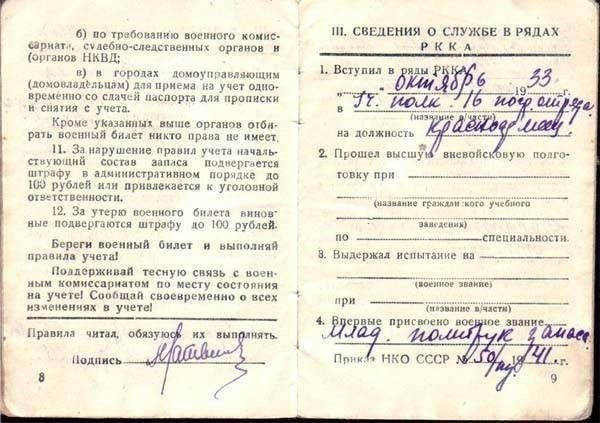 б) по требованию военного комис-
сариата, судебно-следственных органов и
(органов НКВД;
в) в городах домоуправляющим
(домовладельцам) для приема на учет одно-
временно со сдачей паспорта для прописки
и снятия с учета.
Кроме указанных выше органов отби-
рать военный билет никто права не имеет.
11. За нарушение правил учета началь-
ствующий состав запаса подвергается
штрафу в административном порядке до
100 рублей или привлекается к уголовной
ответственности.
12. За утерю военного билета винов-
ные подвергаются штрафу до 100 рублей.
Береги военный билет и выполняй
правила учета!
Поддерживай тесную связь с воен-
ным комиссариатом по месту состояния
на учете! Сообщай своевременно о всех
изменениях в учете!
Правила читал, обязуюсь их выполнять.
Подпись
8
III. СВЕДЕНИЯ О СЛУЖБЕ В РЯДАХ
РККА
1. Вступил в ряды РККА
„ “ октябрь 1933 г.
в 14. полк. 16 погр отряда
(название в/части)
на должность красноармеец
2. Прошел высшую вневойсковую подго-
товку при
(название гражданского учебного
заведения)
по специальности.
3. Выдержал испытание на
(военное звание)
при
(название в/части)
4. Впервые присвоено военное звание
Млад. политрук запаса
Приказ НКО СССР № 150/пу 1941 г.
9